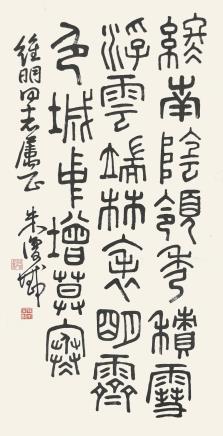 終南陰領秀積雪
浮雲端林表明霽
色城中增莫寒
維明同志屬正 朱復戡